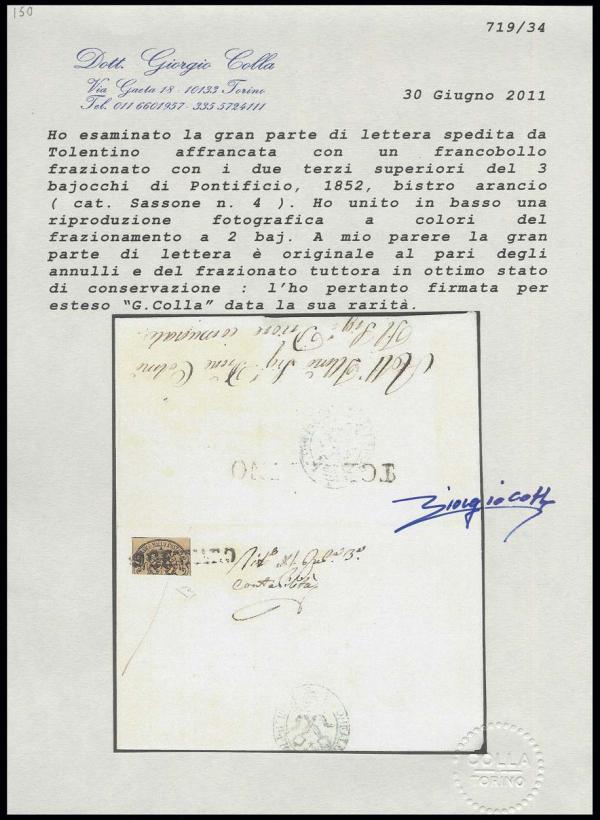 150
719/34
Dott. Giorgio Colla
Via Gaeta 18 - 10133 Torino
Tel. 011 6601957 - 335 5724111
30 Giugno 2011
Ho esaminato la gran parte di lettera spedita da
Tolentino affrancata con un francobollo
frazionato con i due terzi superiori del 3
bajocchi di Pontificio, 1852, bistro arancio
( cat. Sassone n. 4 ). Ho unito in basso una
riproduzione fotografica a colori del
frazionamento a 2 baj. A mio parere la gran
parte di lettera è originale al pari degli
annulli e del frazionato tuttora in ottimo stato
di conservazione : l'ho pertanto firmata per
esteso "G.Colla" data la sua rarità.
All' Illmo Sig
Il Sig. Priore comunale
Giorgio Colla
COLLA
TORINO